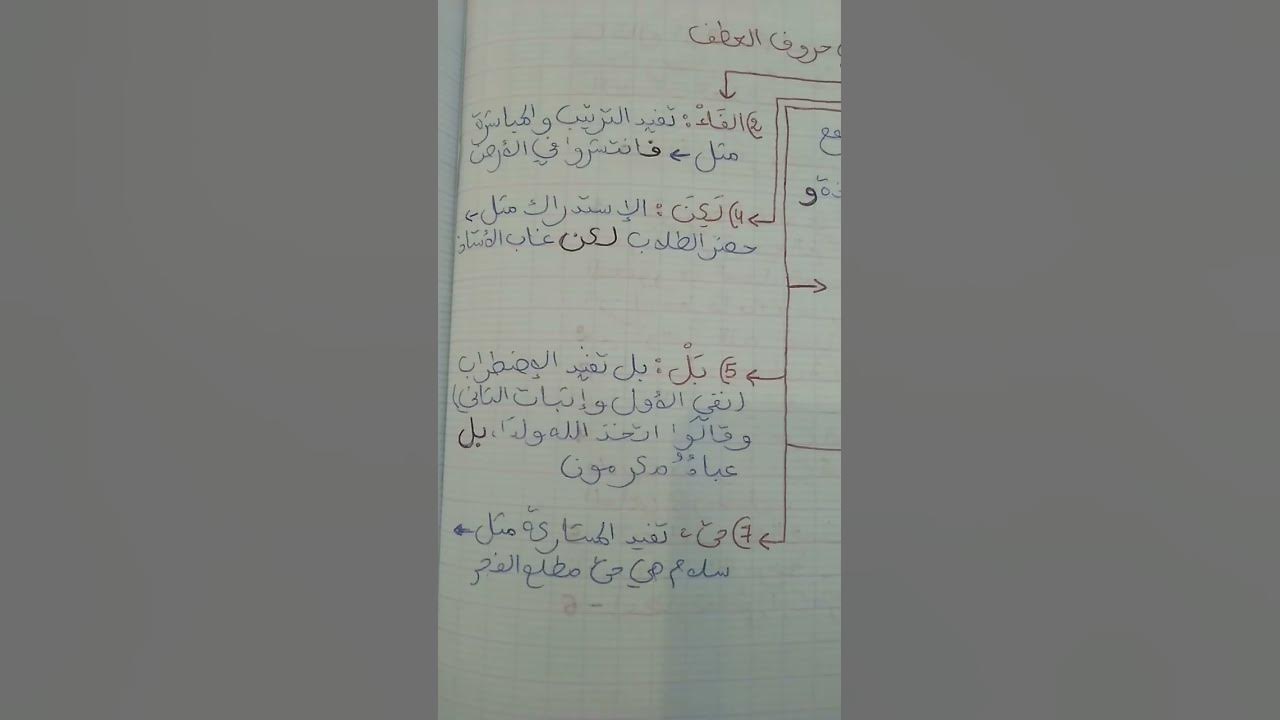 حروف العطف
2) الفَاءْ: تفيد الترتيب والمباشرة
مثل ← فانتشروا في الأرض
4) لَكِنَ: الإستدراك مثل ←
حضر الطلاب لكن غاب الأستاذ
5) بَلْ: بل تفيد الإضطراب
(نفي الأول وإتبات التاني)
وقالوا اتخذ الله ولدا، بل
عبادٌ مكرمون
7) حتى: تفيد المشاركة مثل ←
سلام هي حتى مطلع الفجر